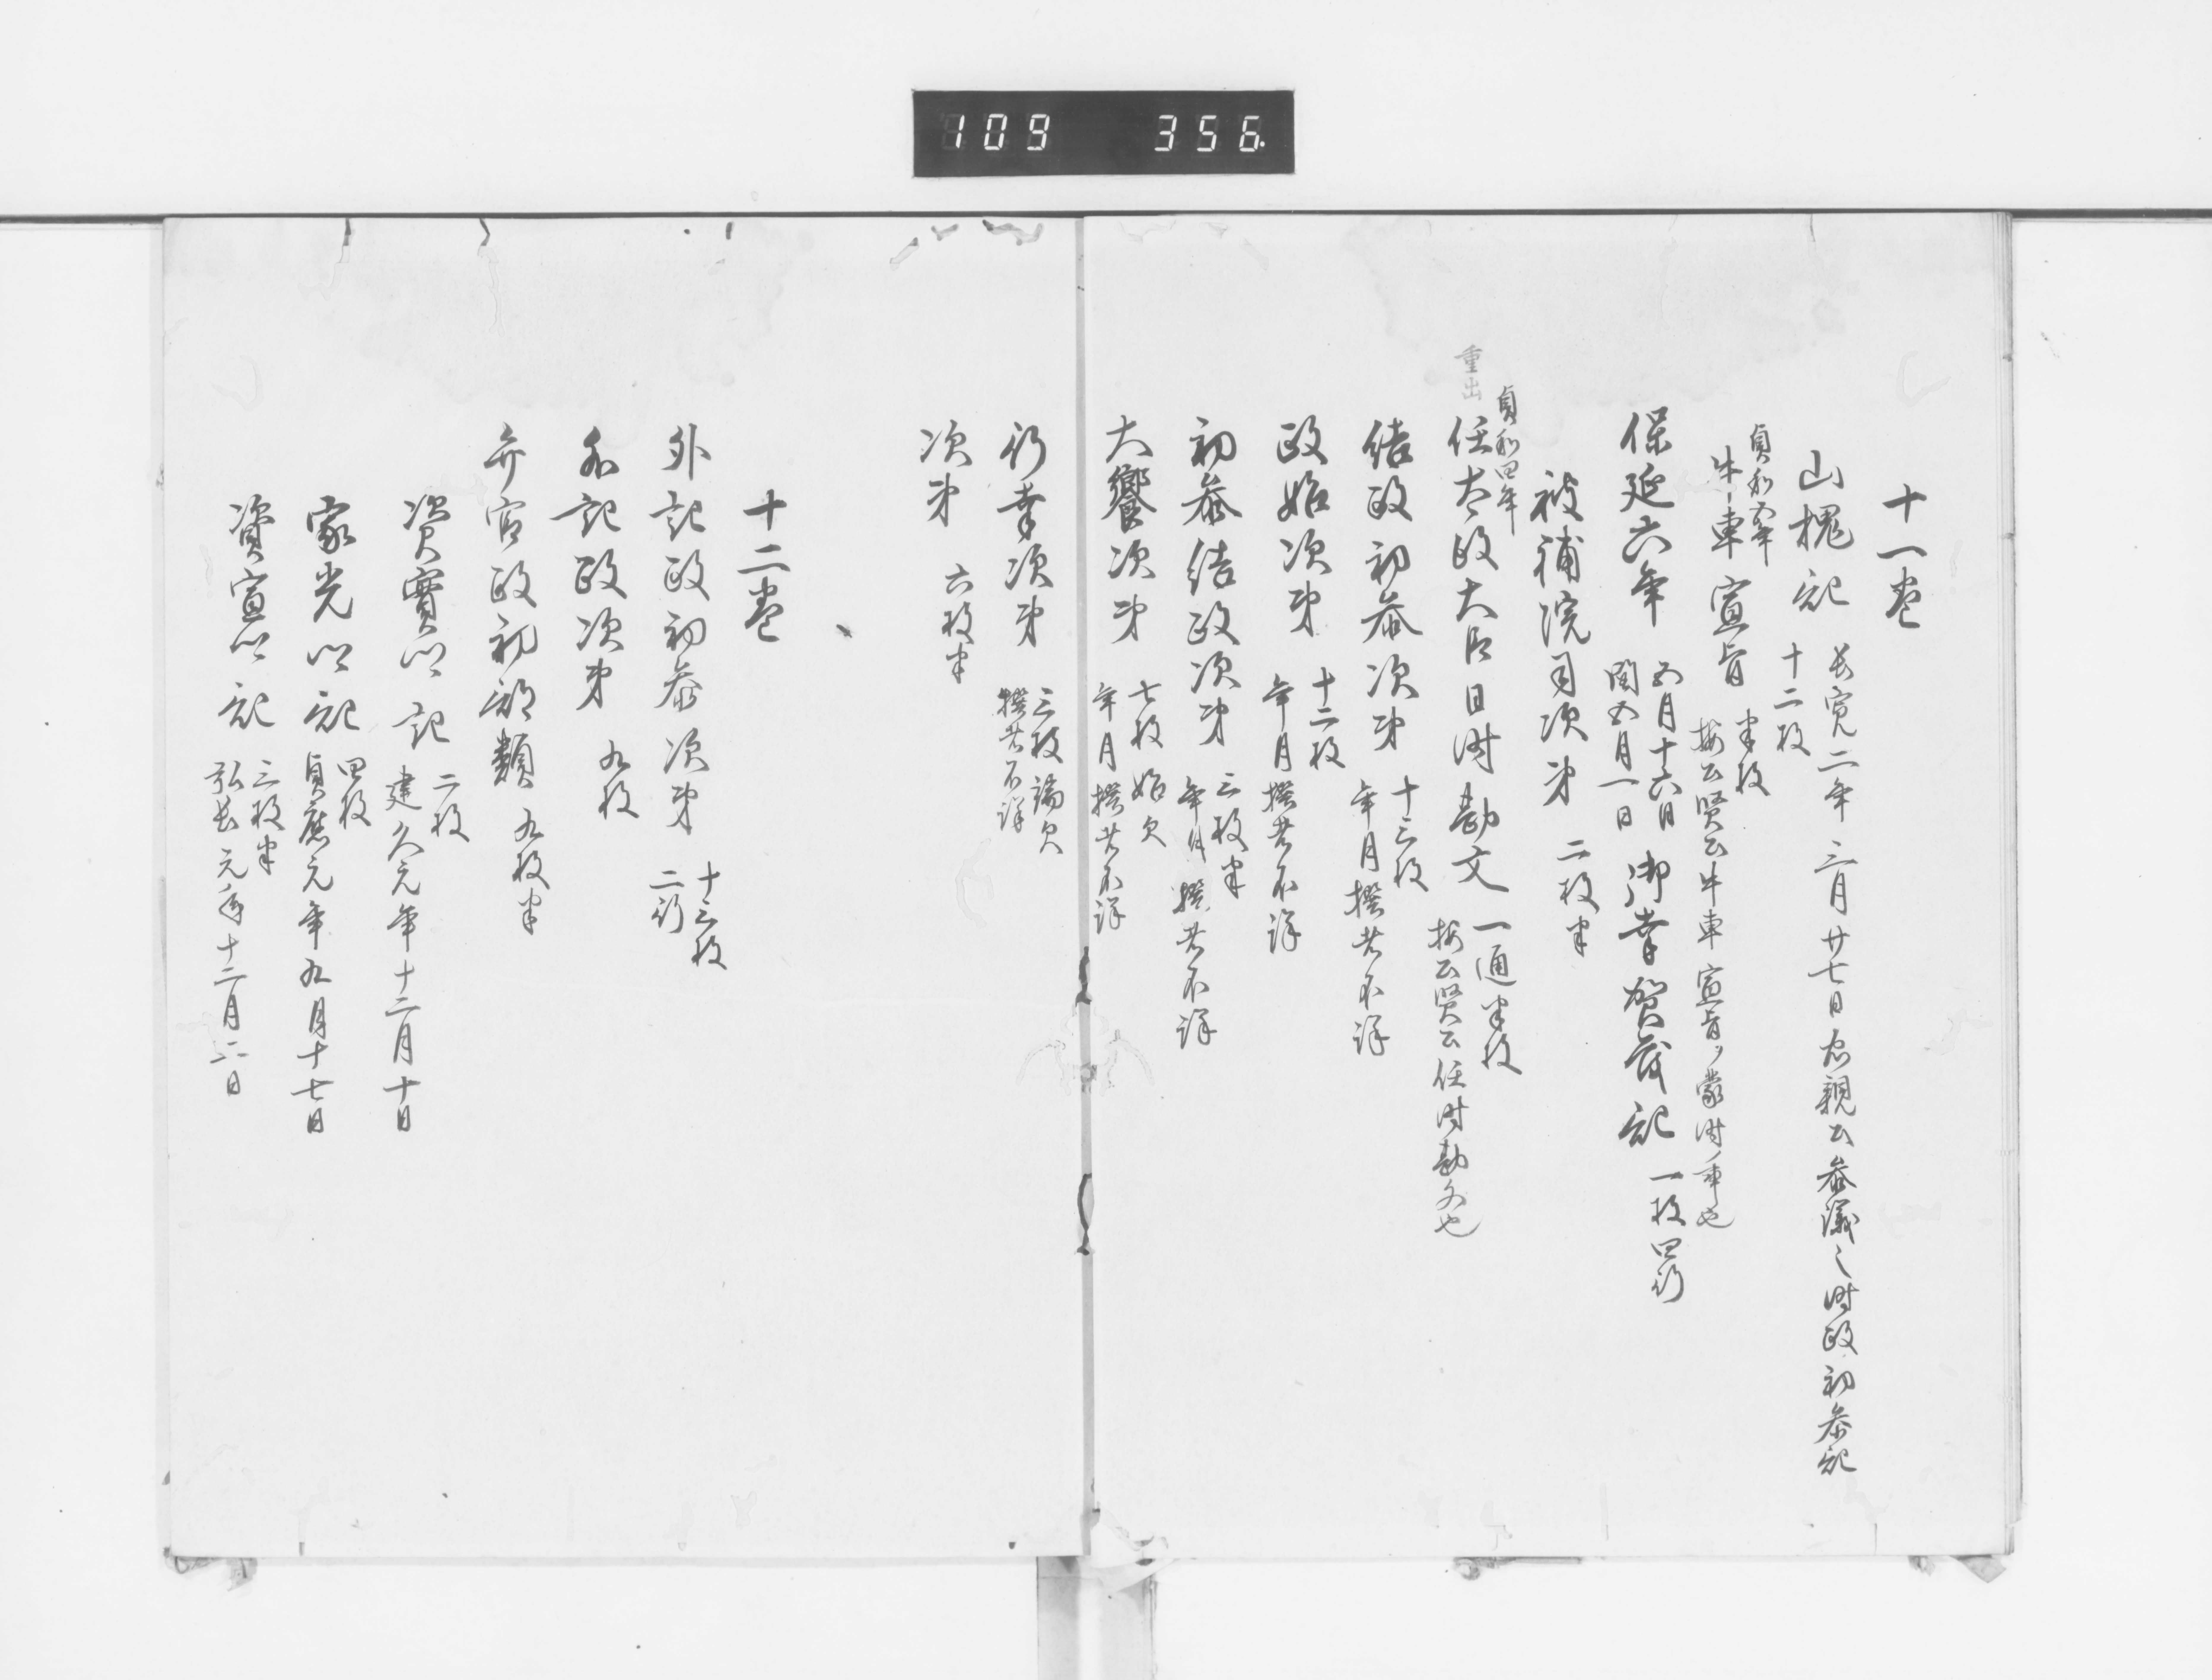 109 356
十一巻
山槐記 長寛二年三月廿七日忠親公参議之時政初参記
十二枚
貞和五年
牛車宣旨 半枚
按公賢公牛車宣旨ヲ蒙時ノ事也
保延六年 五月十六日
閏五月一日 御幸賀茂記 一枚四行
被補院司次第 二枚半
重出
貞和四年
任太政大臣日時勘文 一通半枚
按公賢公任時勘文也
結政初参次第 十三枚
年月撰者不詳
政始次第 十二枚
年月撰者不詳
初参結政次第 三枚半
年月撰者不詳
大饗次第 七枚始欠
年月撰者不詳
行幸次第 三枚端欠
撰者不詳
次第 六枚半
十二巻
外記政初参次第 十三枚
二行
外記政次第 九枚
弁官政初部類 九枚半
資實公記 二枚
建久元年十二月十日
家光公記 四枚
貞應元年九月十七日
資宣公記 三枚半
弘長元年十二月二日